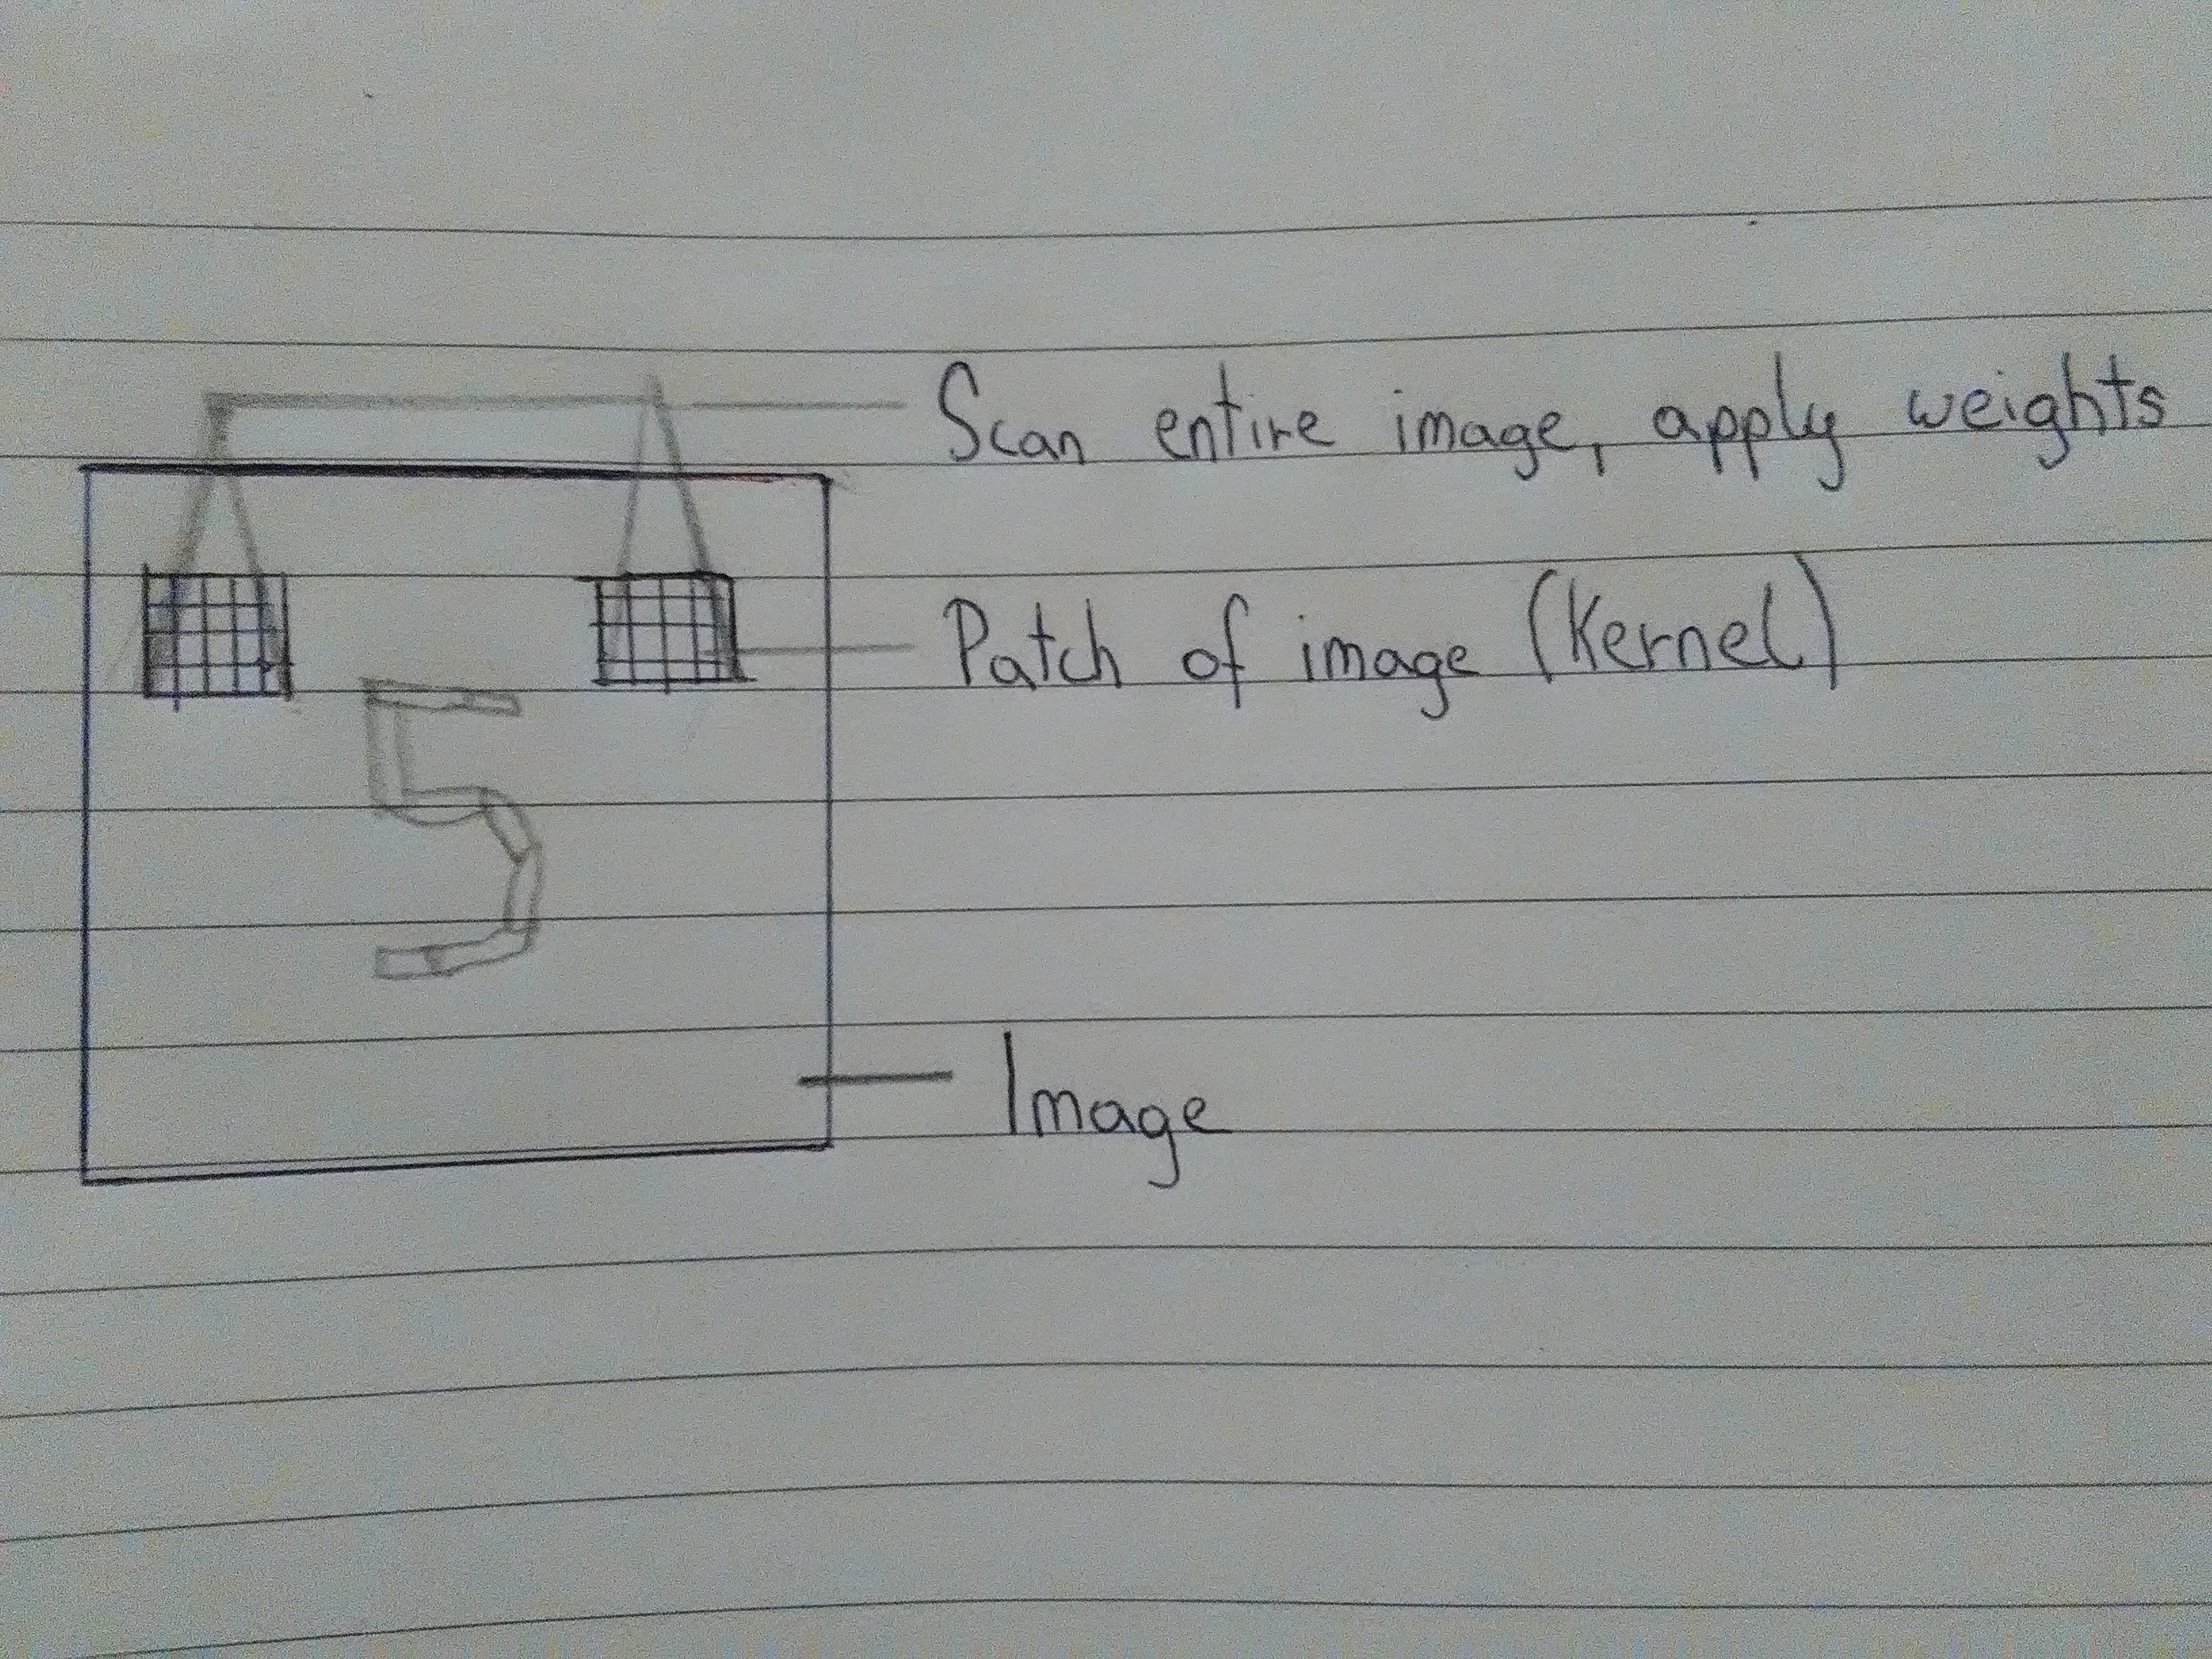 Scan entire image, apply weights
Patch of image (Kernel)
5
Image